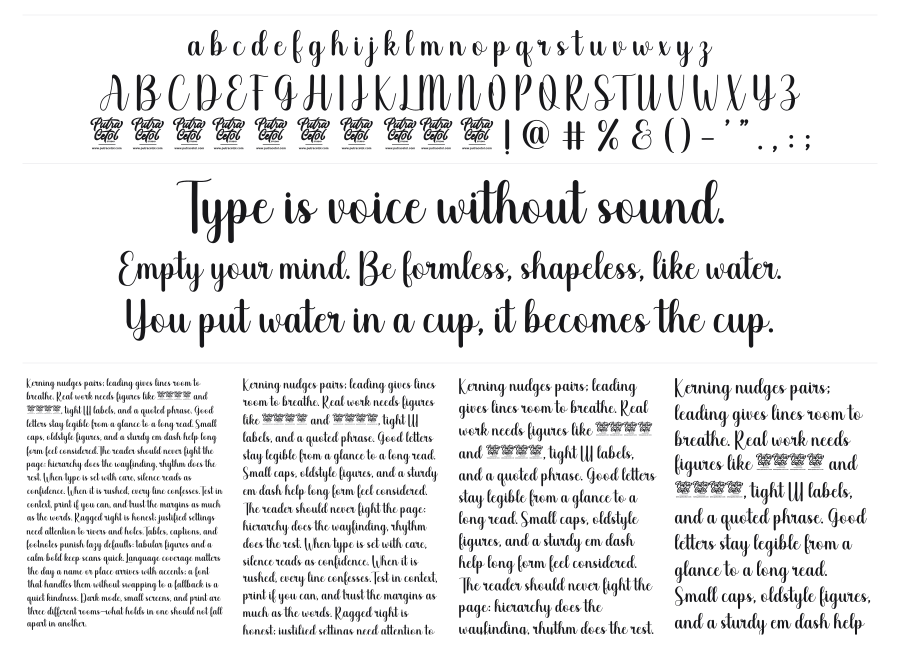 a b c d e f g h i j k l m n o p q r s t u v w x y z
A B C D E F G H I J K L M N O P Q R S T U V W X Y Z
Putra Cetol Putra Cetol Putra Cetol Putra Cetol Putra Cetol Putra Cetol Putra Cetol Putra Cetol Putra Cetol Putra Cetol ! @ # % & ( ) - ' " . , : ;
www.putracetol.com www.putracetol.com www.putracetol.com www.putracetol.com www.putracetol.com www.putracetol.com www.putracetol.com www.putracetol.com www.putracetol.com www.putracetol.com
Type is voice without sound.
Empty your mind. Be formless, shapeless, like water.
You put water in a cup, it becomes the cup.
Kerning nudges pairs; leading gives lines room to
breathe. Real work needs figures like and
, tight UI labels, and a quoted phrase. Good
letters stay legible from a glance to a long read. Small
caps, oldstyle figures, and a sturdy em dash help long
form feel considered. The reader should never fight the
page: hierarchy does the wayfinding, rhythm does the
rest. When type is set with care, silence reads as
confidence. When it is rushed, every line confesses. Test in
context, print if you can, and trust the margins as much
as the words. Ragged right is honest; justified settings
need attention to rivers and holes. Tables, captions, and
footnotes punish lazy defaults: tabular figures and a
calm bold keep scans quick. Language coverage matters
the day a name or place arrives with accents: a font
that handles them without swapping to a fallback is a
quiet kindness. Dark mode, small screens, and print are
three different rooms—what holds in one should not fall
apart in another.
Kerning nudges pairs; leading gives lines
room to breathe. Real work needs figures
like and , tight UI
labels, and a quoted phrase. Good letters
stay legible from a glance to a long read.
Small caps, oldstyle figures, and a sturdy
em dash help long form feel considered.
The reader should never fight the page:
hierarchy does the wayfinding, rhythm
does the rest. When type is set with care,
silence reads as confidence. When it is
rushed, every line confesses. Test in context,
print if you can, and trust the margins as
much as the words. Ragged right is
honest; justified settings need attention to
Kerning nudges pairs; leading
gives lines room to breathe. Real
work needs figures like
and , tight UI labels,
and a quoted phrase. Good letters
stay legible from a glance to a
long read. Small caps, oldstyle
figures, and a sturdy em dash
help long form feel considered.
The reader should never fight the
page: hierarchy does the
wayfinding, rhythm does the rest.
Kerning nudges pairs;
leading gives lines room to
breathe. Real work needs
figures like and
, tight UI labels,
and a quoted phrase. Good
letters stay legible from a
glance to a long read.
Small caps, oldstyle figures,
and a sturdy em dash help